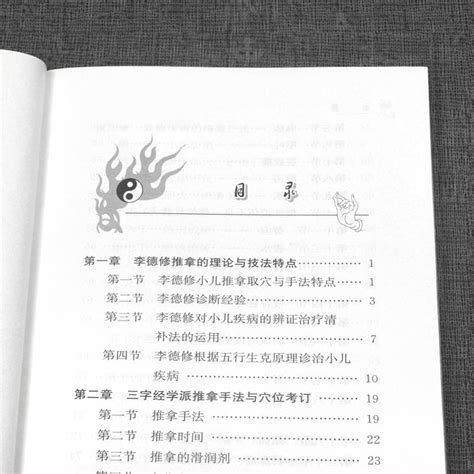 目录
第一章 李德修推拿的理论与技法特点…………… 1
第一节 李德修小儿推拿取穴与手法特点……… 1
第二节 李德修诊断经验………………………… 3
第三节 李德修对小儿疾病的辨证治疗清
补法的运用……………………………… 7
第四节 李德修根据五行生克原理诊治小儿
疾病……………………………………… 10
第二章 三字经学派推拿手法与穴位考订……… 19
第一节 推拿手法………………………………… 19
第二节 推拿时间………………………………… 22
第三节 推拿的滑润剂…………………………… 23